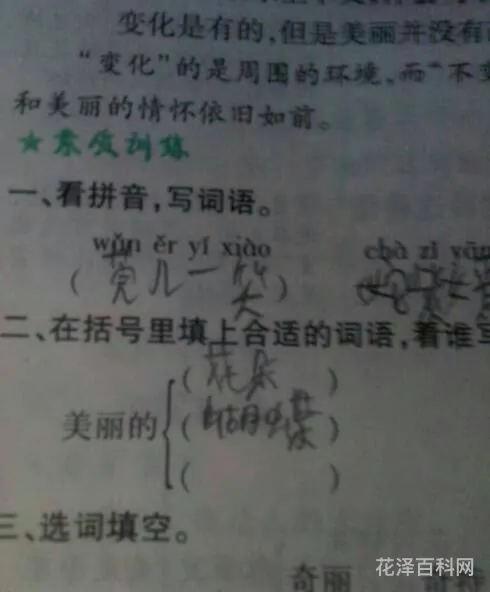 变化是有的,但是美丽并没有
“变化”的是周围的环境,而“不变
和美丽的情怀依旧如前。
★素质训练
一、看拼音,写词语。
wǎn ěr yí xiào chà zǐ yān
(莞儿一笑)
二、在括号里填上合适的词语,看谁写
美丽的
(花朵)
(蝴蝶)
( )
三、选词填空。
奇丽 奇特
花泽百科网